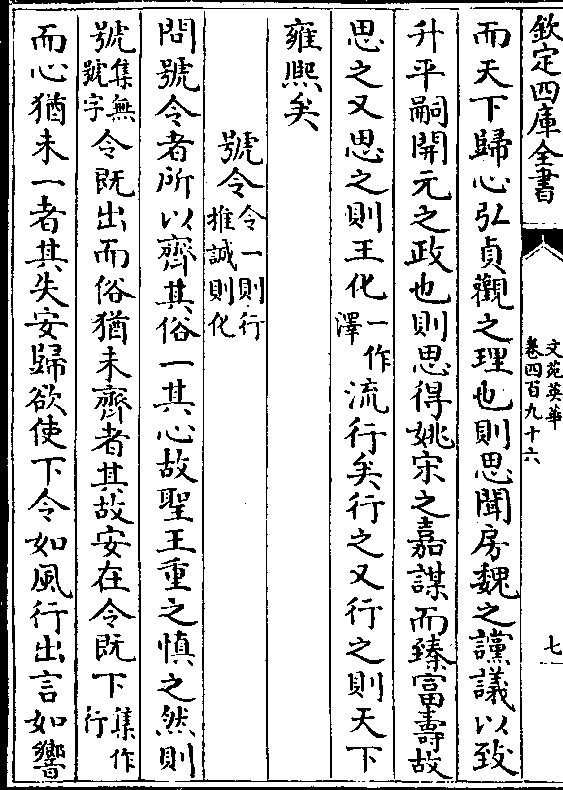 欽定四庫全書
文苑英華
卷四百九十六
七
而天下歸心弘貞觀之理也則思聞房魏之讜議以致
升平嗣開元之政也則思得姚宋之嘉謀而臻富壽故
思之又思之則王化一作澤流行矣行之又行之則天下
雍熙矣
號令令一則行推誠則化
問號令者所以齊其俗一其心故聖王重之慎之然則
號集無號字令既出而俗猶未齊者其故安在令既下集作行
而心猶未一者其失安歸欲使下令如風行出言如響